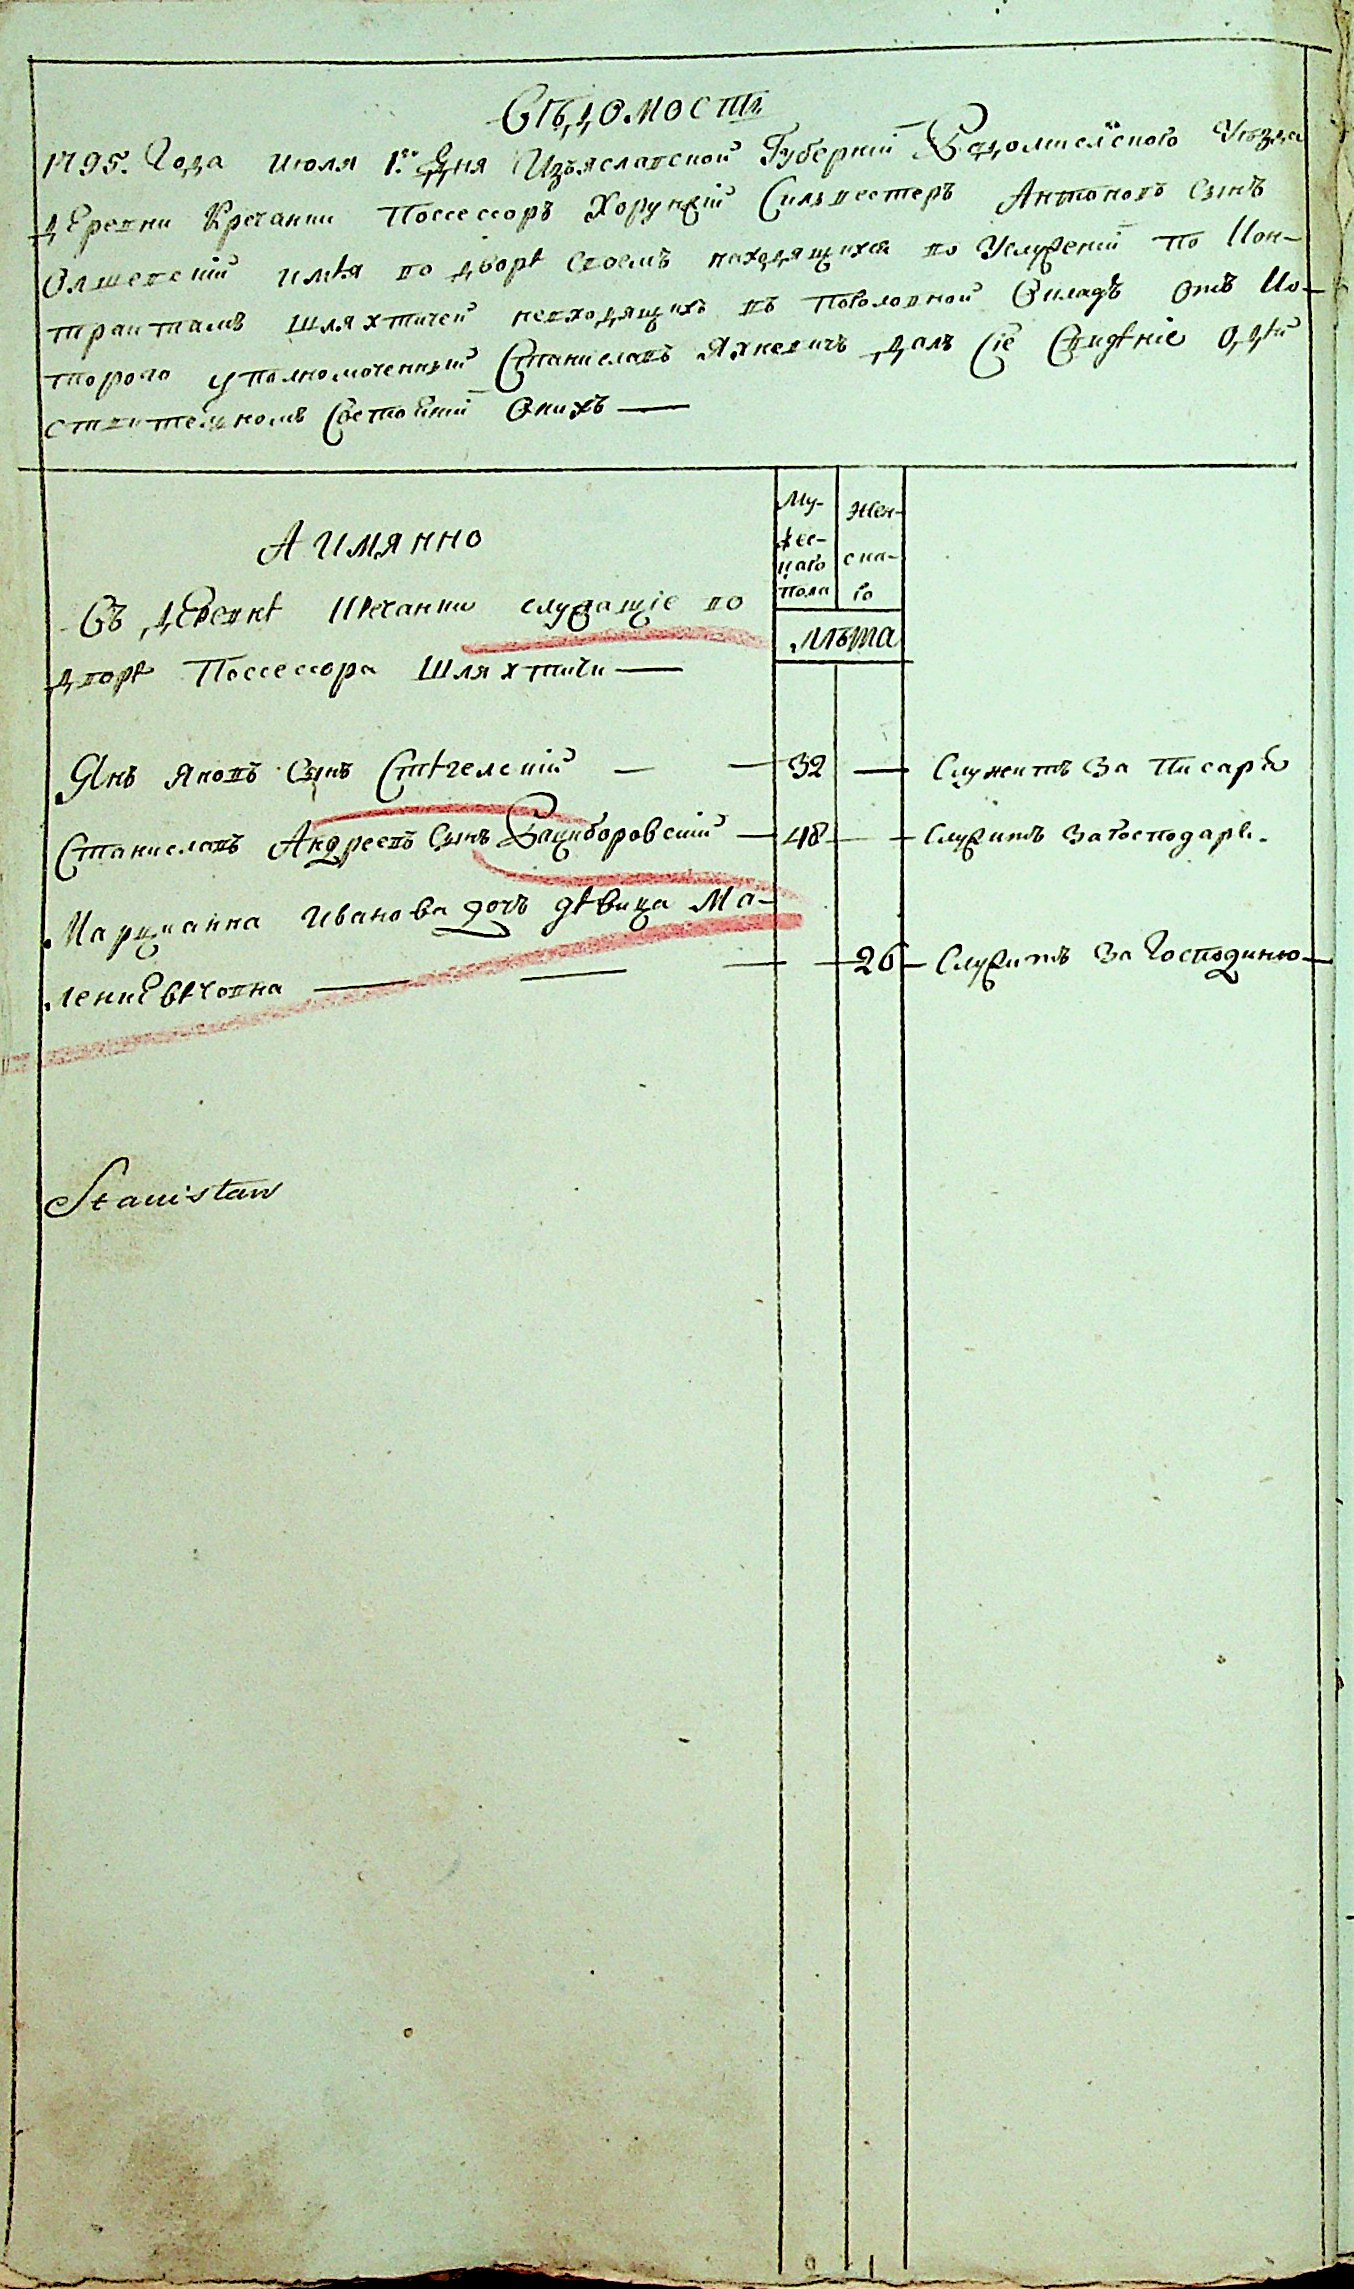 Вѣдомость
1795. Года июля 1го Дня Изъяславской Губернiи Радомисльского Уѣзда
деревни Кречании Поссессоръ Хорунжiй Сильвестеръ Антоновъ Сынъ
Олшевскiй имѣя во дворѣ своемъ находящихся во Услуженiи по Кон-
трактамъ шляхтичей невходящихъ въ поголовной Окладъ отъ Ко-
торого уполномоченный Станиславъ Яхневичъ далъ Сiе Свидѣнiе о дѣй
ствительномъ Состоянiи Онихъ —
А имянно
Въ деревнѣ Кречании служащiе во
дворѣ Поссессора Шляхтичи —
Му-
жес-
каго
пола
Жен-
ска-
го
Лѣта
Янъ Яковъ Сынъ Стѣчелскiй — — 32 — Служитъ За Писаря
Станиславъ Андреевъ Сынъ Рациборовскiй — 48 — Служитъ За Господаря.
Марцианна Иванова дочъ дѣвица Ма-
лениевѣчовна — — — 26 — Служитъ За Господиню —
Stanisław